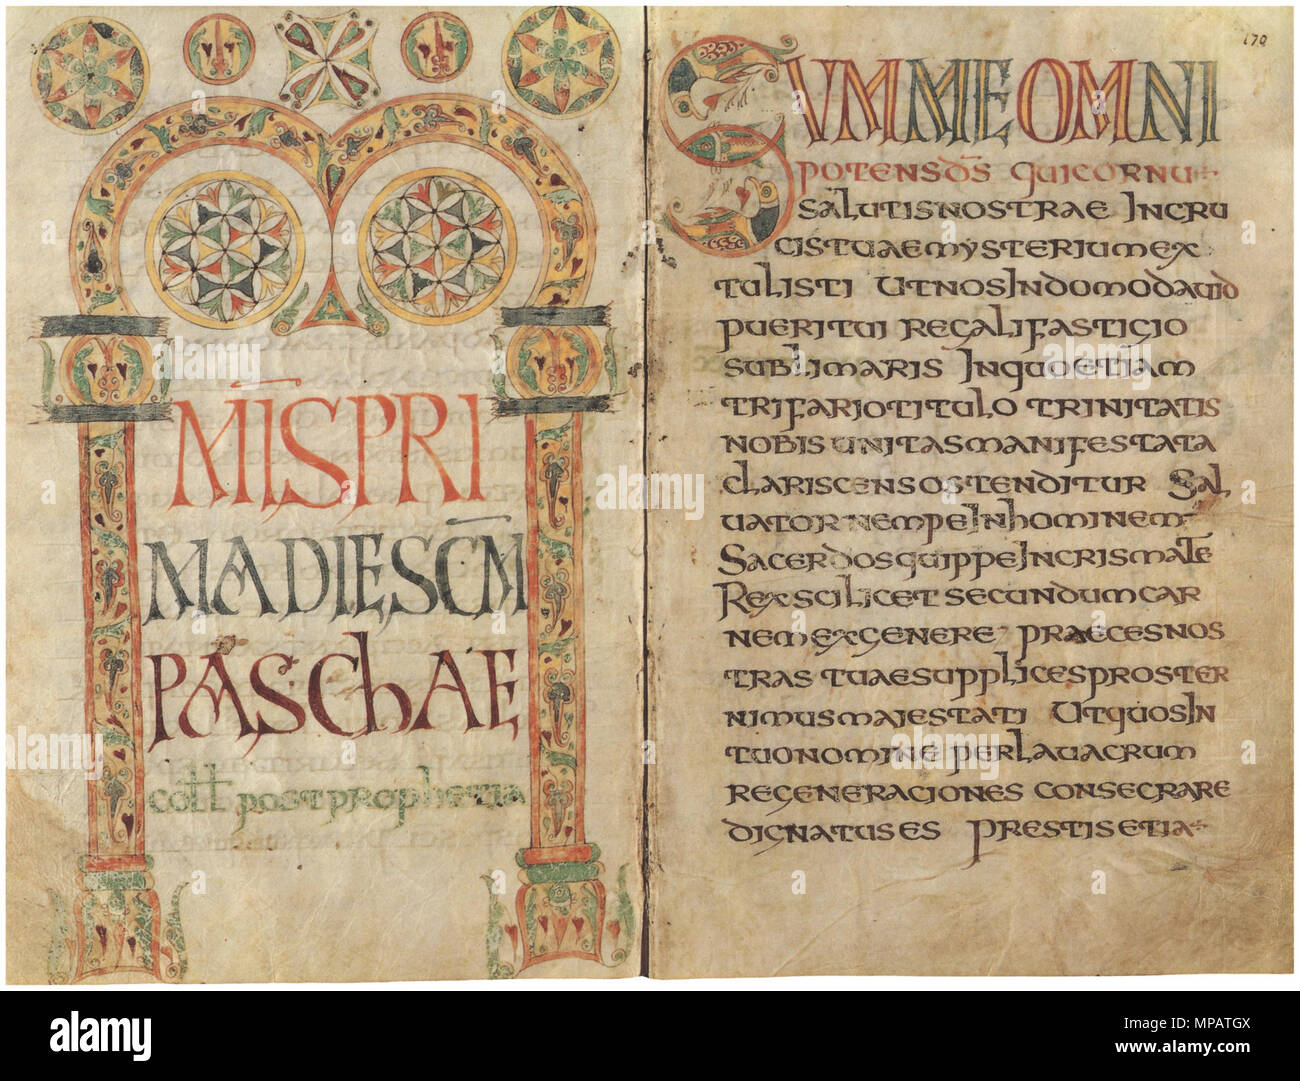 MI̅SPRI
MADIESC̅M
PASChAE
coll postprophetia
170
SUMMEOMNI
POTENSDS̅ QUICORNU
SALUTISNOSTRAE INCRU
CISTUAEMYSTERIUMEX
TULISTI UTNOSINDOMODAUID
PUERITUI REGALIFASTIGIO
SUBLIMARIS INQUOETIAM
TRIFARIOTITULO TRINITATIS
NOBISUNITASMANIFESTATA
CLARISCENSOSTENDITUR SAL
UATORNEMPEINHOMINEM
SACERDOSQUIPPEINCRISMATE
REXSCILICETSECUNDUMCAR
NEMEXGENERE PRAECESNOS
TRASTUAESUPPLICESPROSTER
NIMUSMAIESTATI UTQUOSIN
TUONOMINEPERLAUACRUM
REGENERACIONES CONSECRARE
DIGNATUSES PRESTISETIA
a alamy stock photo
alamy
Image ID: MPATGX
www.alamy.com